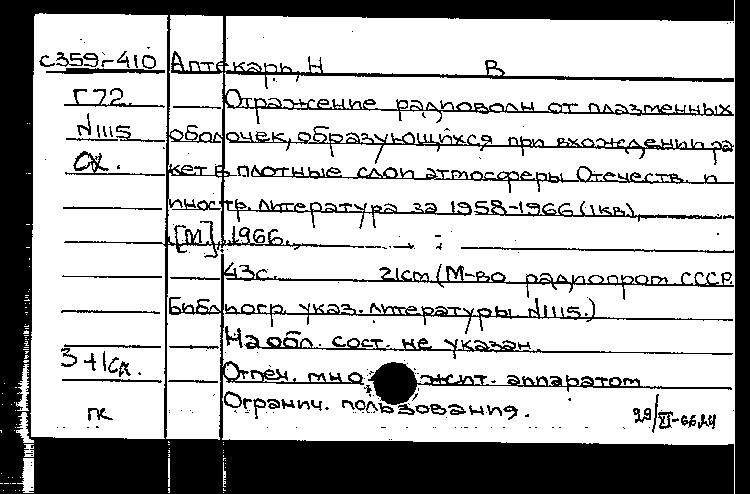 с359-410 Аптекарь, Н В
Г72 Отражение радиоволн от плазменных
N1115 оболочек, образующихся при вхождении ра
сх. кет в плотные слои атмосферы Отечеств. и
иностр. литература за 1958-1966 (1кв),
[М], 1966.
43с. 21cm (М-во радиопром СССР
Библиогр. указ. литературы N1115.)
На обл. сост. не указан.
3+1сх. Отпеч. мно жит. аппаратом
пк Огранич. пользования. 29/XI-66